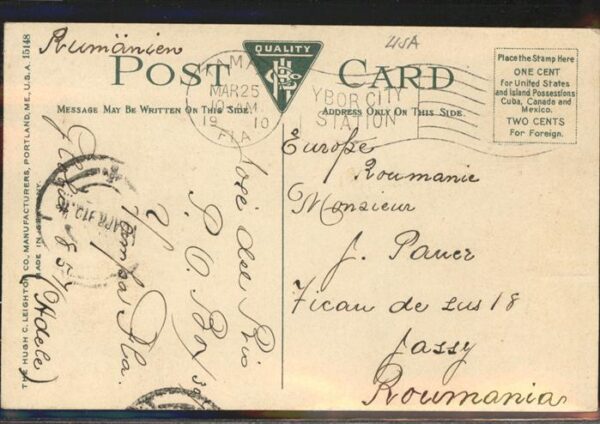 USA
Rumänien
POST CARD
QUALITY
MESSAGE MAY BE WRITTEN ON THIS SIDE.
ADDRESS ONLY ON THIS SIDE.
Place the Stamp Here
ONE CENT
For United States
and Island Possessions
Cuba, Canada and
Mexico.
TWO CENTS
For Foreign.
TAMPA
MAR 25
19 10
FLA
YBOR CITY
STATION
José del Rio
P. O. Box
Tampa Fla.
(Adele)
Europe
Roumanie
Monsieur
J. Pauer
Ticau de sus 18
Jassy
Roumania
THE HUGH C. LEIGHTON CO., MANUFACTURERS, PORTLAND, ME., U.S.A. 15148